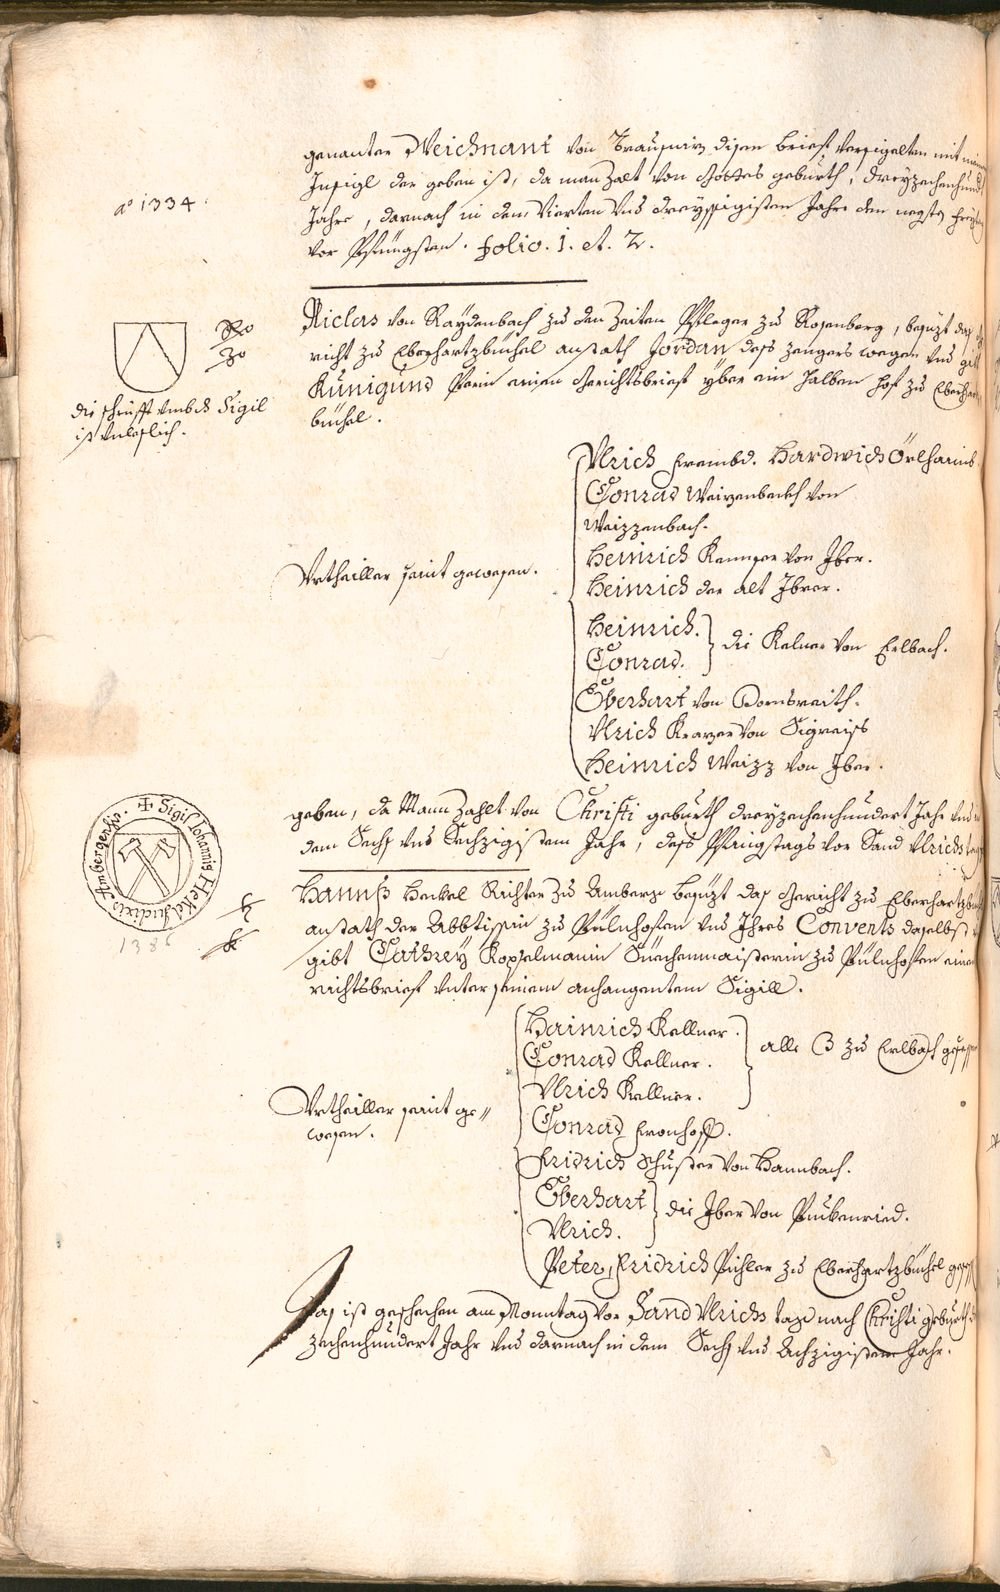 genanter Weichnant von Trausnicz disen brieff versigelten mit
Insigl der geben ist, da man Zalt von Gottes geburth, dreyzechenhund
Jahr, darnach in dem Vierten vnd dreyssigisten Jahr den negsten Freytag
vor Pfingsten. folio. 1. et. 2.
a° 1334.
Niclas von Raydenbach zu den Zeiten Pfleger zu Rosenberg, besizt das
richt zu Eberhartzbüchel anstath Jordan dess Zengers wegen vnd gibt
Kunigund einen Gerichtsbrieff yber ein halben hof zu Eberharts
büchel.
die schrifft vmb dz Sigil
ist vnleslich.
Vrthailler seint gewesen.
Vlrich frembd. Hardwich
Conrad Weizenbeckh von
Weizzenbach.
Heinrich Kemnter von Iber.
Heinrich der alt Ibrer.
Heinrich.
Conrad.
die Kelner von Erlbach.
Eberhart von Dornbraith.
Vlrich Krazer von Sigraiss
Heinrich Waizz von Iber.
geben, da Mann Zahlt von Christi geburth dreyzechenhundert Jahr vnd
dem Sechs vnd Sechzigistem Jahr, dess Pfingstags vor Sand Vlrichs tag
✠ Sigil Iohannis Hekel Iudicis Ambergensis.
1386
Hannss Heckel Richter zu Amberg besizt das Gericht zu Eberhartzbüchel
anstath der Abbtissin zu Pülnhofen vnd Ihres Convents daselbst
gibt Cathrey Kopfelmanin Küechenmaisterin zu Pülnhofen einen
richtsbrieff vnter seinem anhangentem Sigill.
Vrthailler seint ge-
wesen.
Hainrich Kellner.
Conrad Kellner.
Vlrich Kellner.
alle 3 zu Erlbach gesessen
Conrad Fronhoff.
Fridrich Schuster von Hannbach.
Eberhart
Vlrich.
die Iber von Pinkenried.
Peter, Fridrich Pichler zu Eberhartzbüchel
Das ist geschechen am Monntag vor Sand Vlrichs tag nach Christi geburth
zechenhundert Jahr vnd darnach in dem Sechs vnd Achzigistem Jahr.